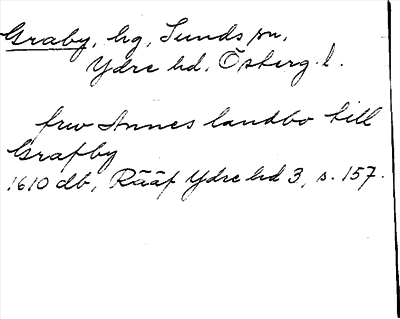 Graby, hg, Sunds sn,
Ydre hd, Östergl.
frw Annes landbo till
Grafby
1610 db, Rääf Ydre hd 3, s. 157.